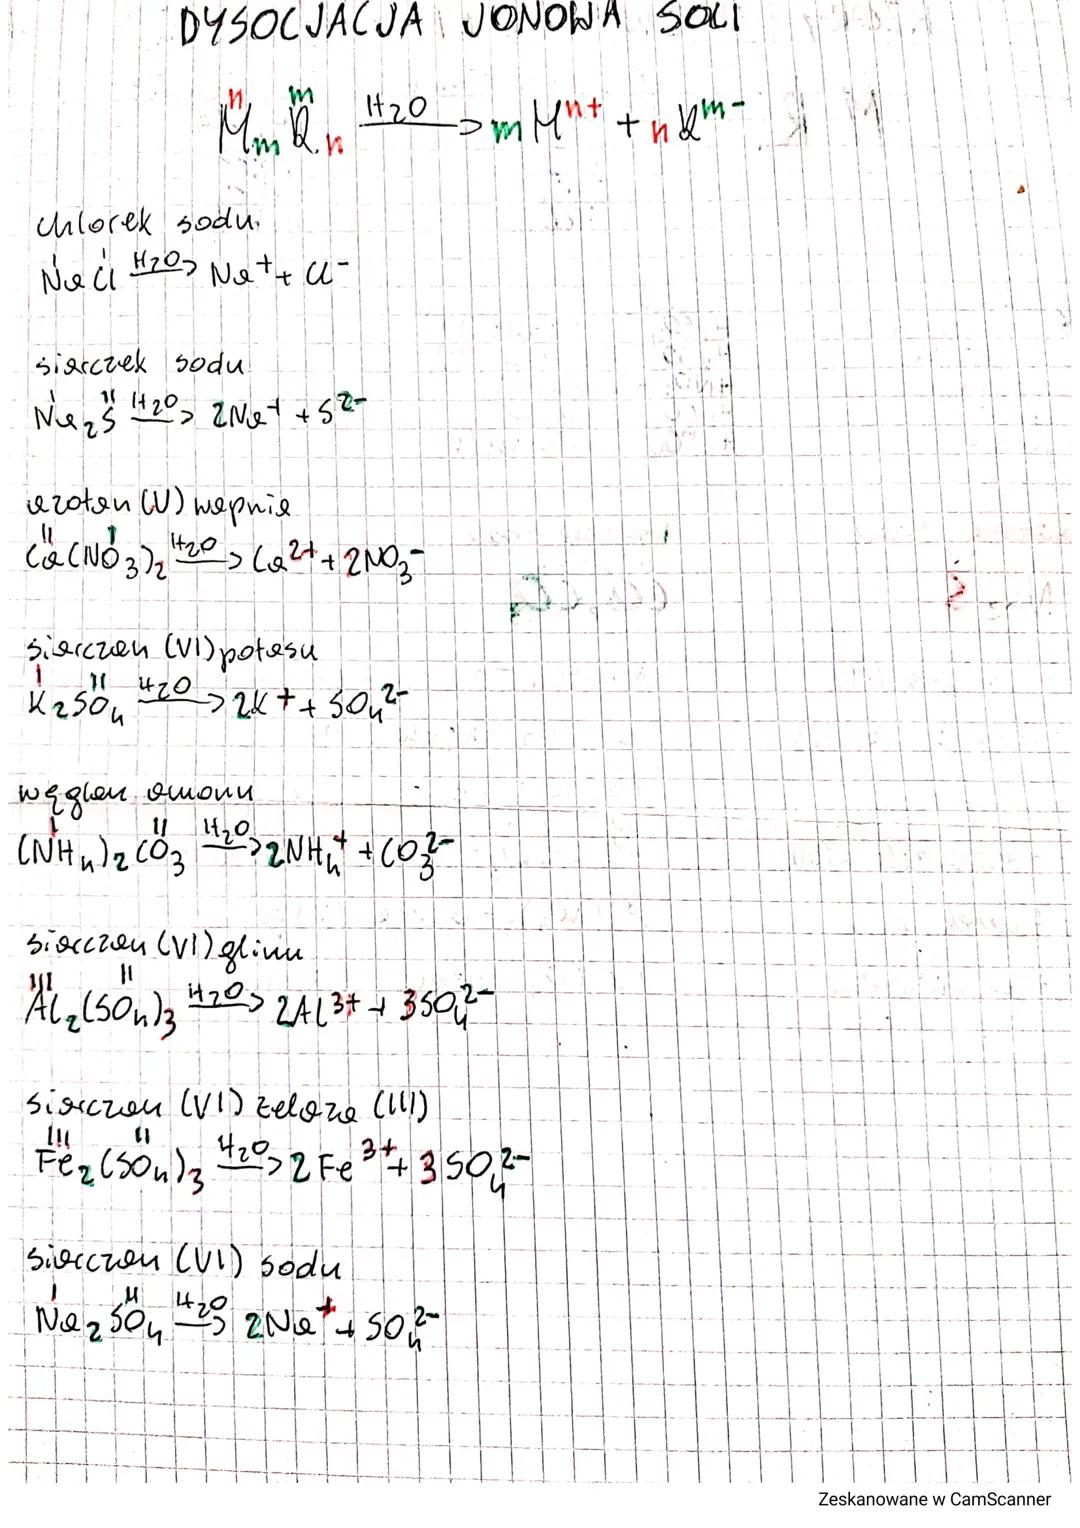 DYSOCJACJA JONOWA SOLI
n m
MmRn H2O → mMn+ + nRm-
chlorek sodu
I I
NaCl H2O → Na+ + Cl-
siarczek sodu
I II
Na2S H2O → 2Na+ + S2-
azotan (V) wapnia
II I
Ca(NO3)2 H2O → Ca2+ + 2NO3-
siarczan (VI) potasu
I II
K2SO4 H2O → 2K+ + SO42-
węglan amonu
I II
(NH4)2CO3 H2O → 2NH4+ + CO32-
siarczan (VI) glinu
III II
Al2(SO4)3 H2O → 2Al3+ + 3SO42-
siarczan (VI) żelaza (III)
III II
Fe2(SO4)3 H2O → 2Fe3+ + 3SO42-
siarczan (VI) sodu
I II
Na2SO4 H2O → 2Na+ + SO42-
Zeskanowane w CamScanner